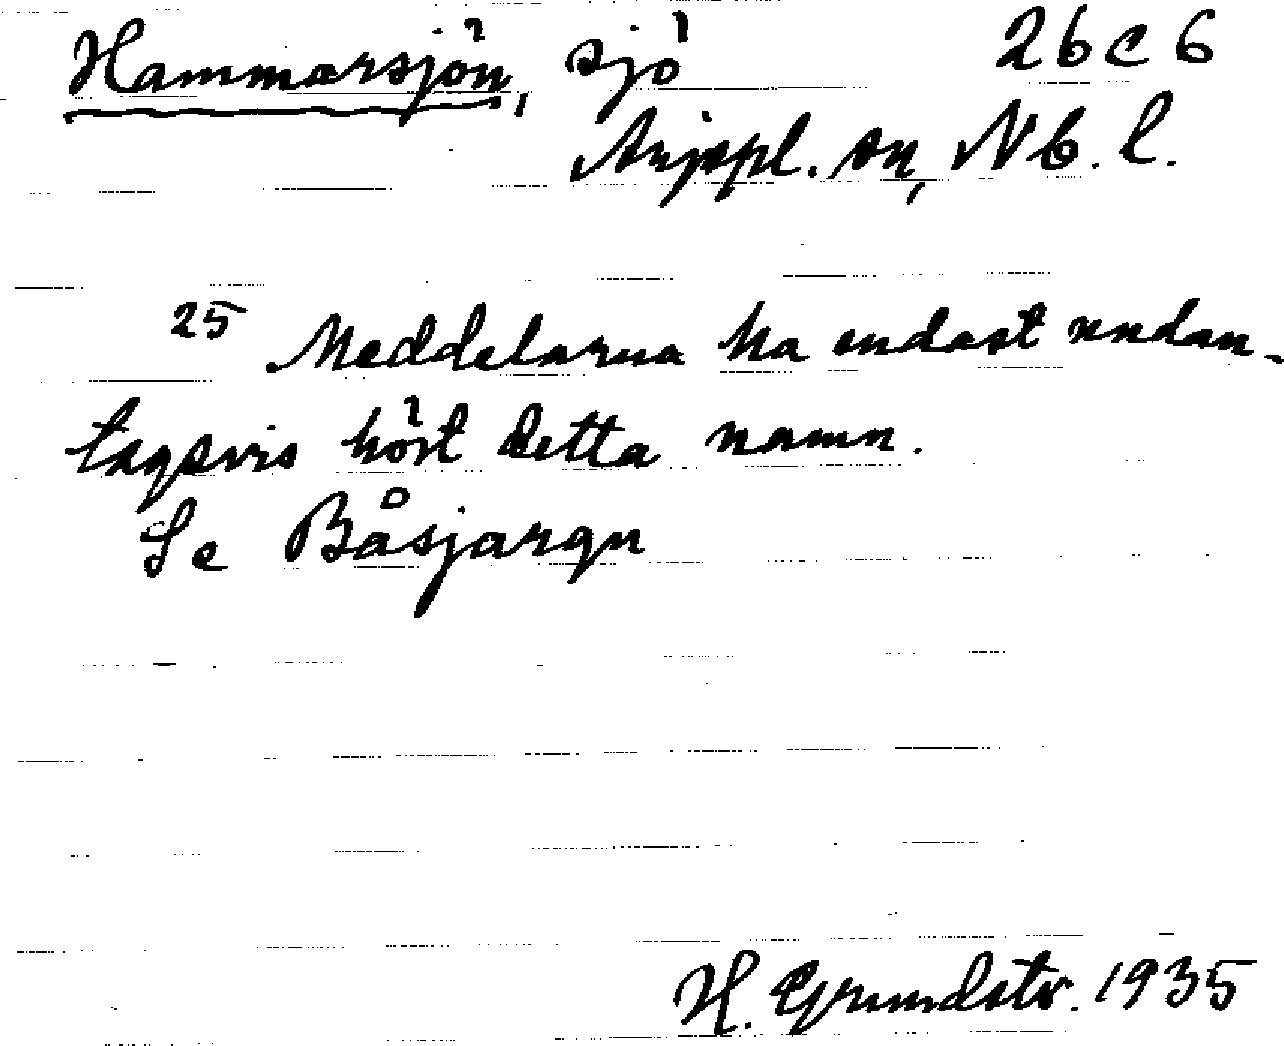 Hammarsjön, sjö 26 C 6
Arjepl. sn, Nb. l.
25 Meddelarna ha endast undan-
tagsvis hört detta namn.
Se Båsjargn
H. Grundstr. 1935